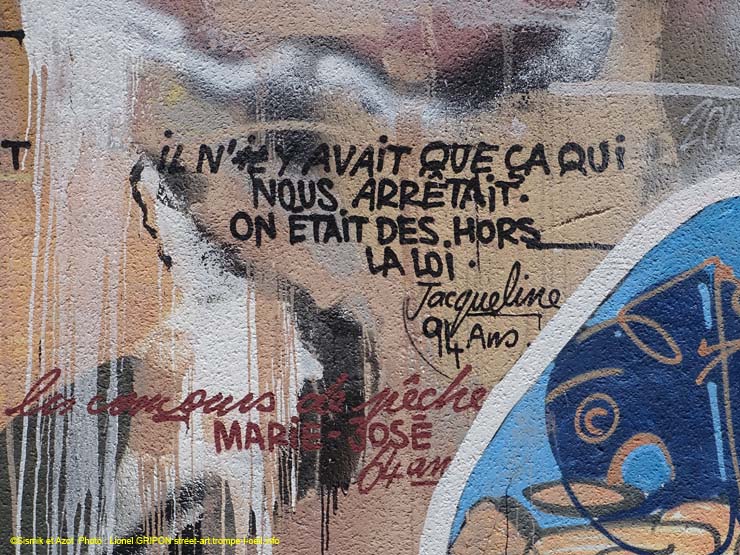 IL N'Y AVAIT QUE ÇA QUI
NOUS ARRÊTAIT.
ON ETAIT DES HORS
LA LOI.
Jacqueline
94 Ans.
les concours de pêche
MARIE-JOSÉ
64 an
T
©Sismik et Azot Photo : Lionel GRIPON street-art.trompe-l-oeil.info